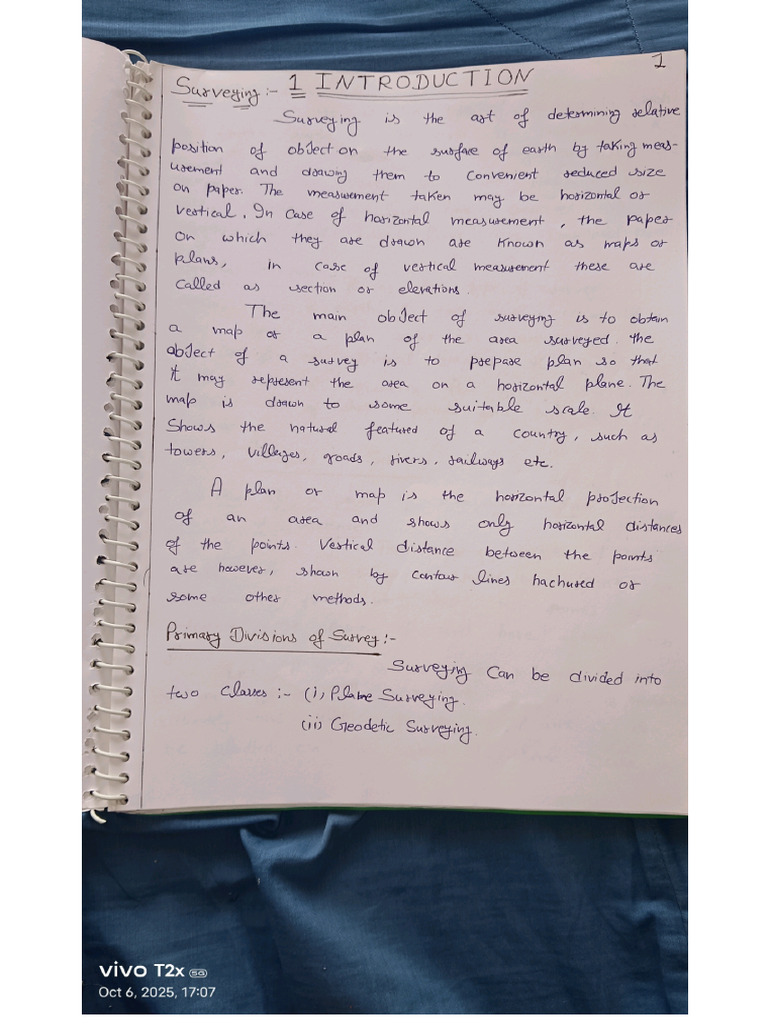 1
Surveying :- 1 INTRODUCTION
Surveying is the art of determining relative
position of object on the surface of earth by taking meas-
urement and drawing them to convenient reduced size
on paper. The measurement taken may be horizontal or
vertical. In case of horizontal measurement, the paper
on which they are drawn are known as maps or
plans, in case of vertical measurement these are
called as section or elevations.
The main object of surveying is to obtain
a map or a plan of the area surveyed. The
object of a survey is to prepare plan so that
it may represent the area on a horizontal plane. The
map is drawn to some suitable scale. It
Shows the natural featured of a country, such as
towers, villeges, roads, rivers, railways etc.
A plan or map is the horizontal projection
of an area and shows only horizontal distances
of the points. Vertical distance between the points
are however, shown by contour lines hachured or
some other methods.
Primary Divisions of Survey:-
Surveying Can be divided into
two classes :- (i) Plane Surveying.
(ii) Geodetic Surveying.
vivo T2x 5G
Oct 6, 2025, 17:07